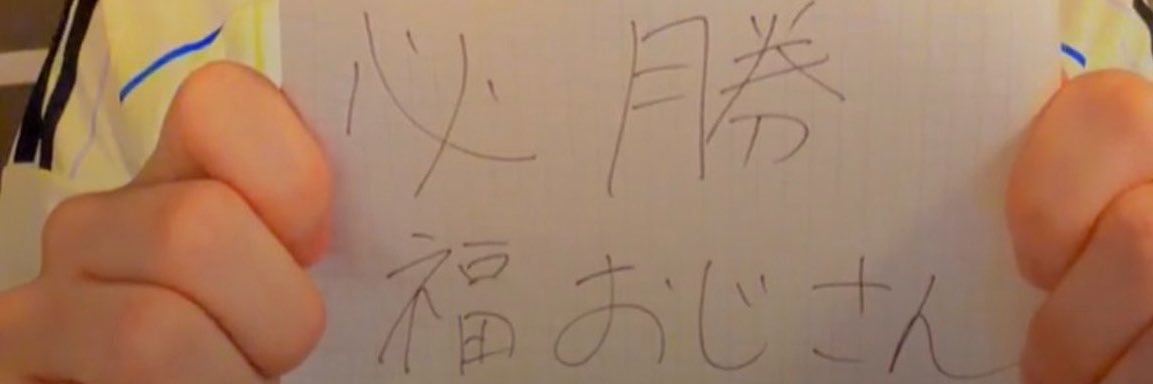 必勝
福おじさん